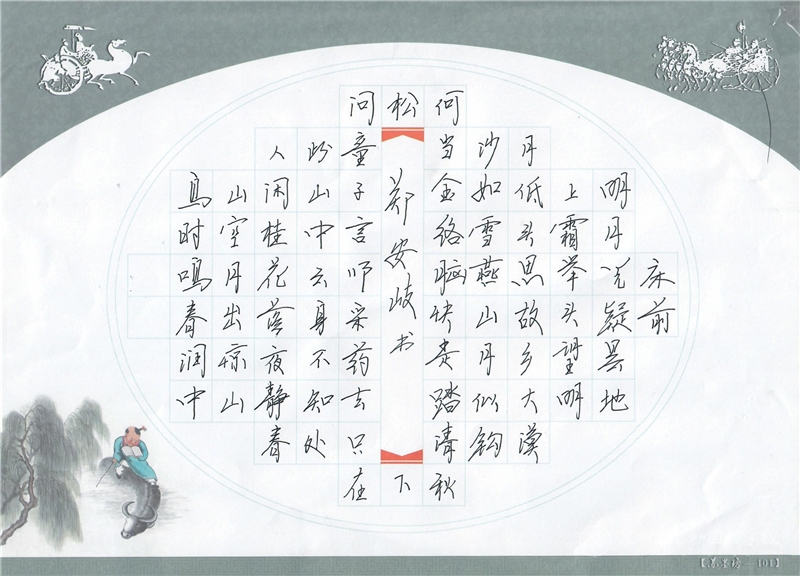 床前
明月光疑是地
上霜举头望明
月低头思故乡大漠
沙如雪燕山月似钩
何当金络脑快走踏清秋
松
郑安岐书
下
问童子言师采药去只在
此山中云身不知处
人闲桂花落夜静春
山空月出惊山
鸟时鸣春涧中